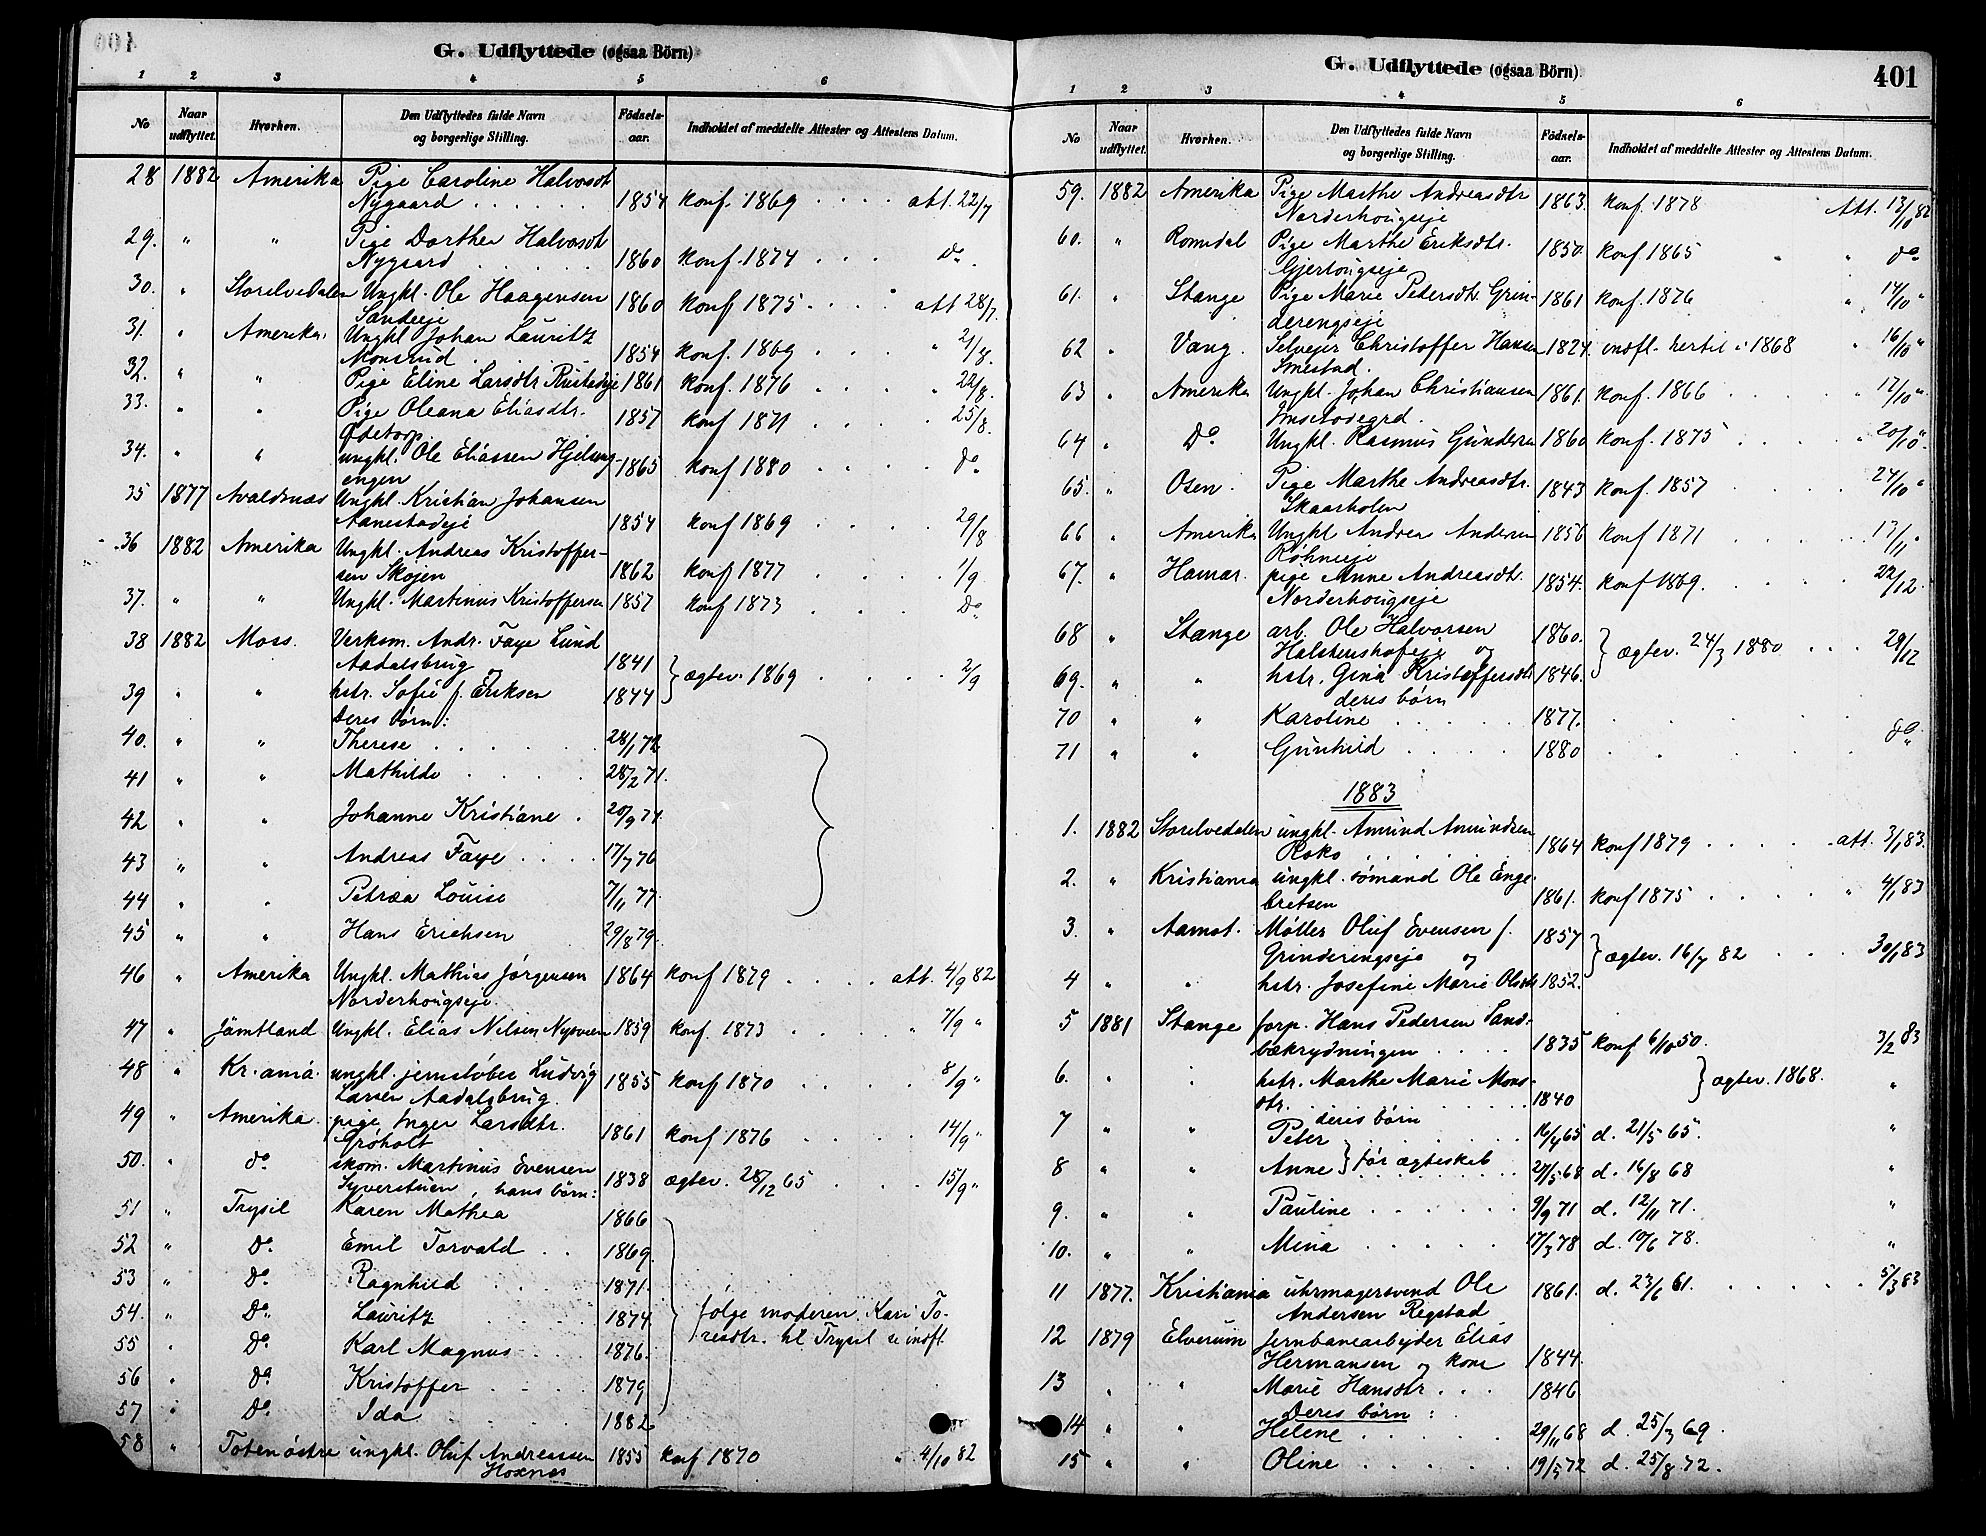 G. Udflyttede (ogsaa Börn)
1 2 3 4 5 6
No Naar udflyttet. Hvorhen. Den Udflyttedes fulde Navn og borgerlige Stilling. Födsels-aar. Indholdet af meddelte Attester og Attestens Datum.
28 1882 Amerika Pige Caroline Halvosdt
Nygaard . . . . . . 1854 konf. 1869 . . . . att. 22/7
29. " " Pige Dorthea Halvosdt
Nygaard . . . . . . 1860 konf. 1874 . . . do.
30. " Storelvedalen Ungkl. Ole Haagensen
Sandeeje 1860 konf. 1875 . . . . att 28/7.
31. " Amerika. Ungkl Johan Lauritz
Monsrud . . . . 1854 konf. 1869 . . . . " 21/8.
32. " " Pige Eline Larsdtr Rustadeje 1861 konf. 1876 . . . . 22/8.
33. " " Pige Oleana Eliasdtr.
Ödetorp 1857 konf 1871 . . . . 25/8.
34. " " ungkl. Ole Eliassen Hjelseng-
engen 1865 konf 1880 . . . . do.
35 1877 Avaldsnæs Ungkl. Kristian Johansen
Aanestadeje 1854 konf 1869 . . . . 29/8
36 1882 Amerika Ungkl. Andreas Kristoffer-
sen Skøjen 1862 konf 1877 . . . . 1/9
37. " " Ungkl. Martinus Kristoffersen 1857 konf 1873 . . . Do.
38 1882 Moss. Verksm. Andr. Faye Lund
Aadalsbrug og 1841 } ægtev. 1869 . . . . 2/9
39 " " hstr. Sofie f. Eriksen 1844
Deres børn:
40. " " Therese . . . . . . 28/1 72
41 " " Mathilde . . . . . 28/2 71.
42 " " Johanne Kristiane . 20/9 74
43 " " Andreas Faye . . . . 17/7 76
44 " " Petræa Louise 7/11 77.
45 " " Hans Erichsen 29/8 79.
46 " Amerika Ungkl. Mathias Jørgensen 1864 konf 1879 . . . . att. 4/9 82
Norderhougseje.
47 " Jämtland Ungkl. Elias Nilsen Nysveen 1859 konf. 1873 . . . . " 7/9 "
48 " Kr.ania. ungkl. jernstøber Ludvig 1855 konf 1870 . . . . 8/9 "
Larsen Aadalsbrug.
49 " Amerika. pige Inger Larsdtr.
Grøholt 1861 konf 1876 . . . . 14/9 "
50. " do. skom. Martinus Evensen
Syverstuen, hans børn: 1838 ægtev. 28/12 65 . . . . 15/9 "
51 " Trysil Karen Mathea 1866
52 " Do. Emil Torvald . . 1869.
53 " Do. Ragnhild . . . 1871.
54. " Do. Lauritz 1874 følge moderen Kari To-
55 " Do. Karl Magnus . . . 1876. resdtr. til Trysil se indfl.
56 " Do. Kristoffer . . . . 1879
57 " Do. Ida 1882
58 " Toten østre ungkl. Oluf Andreassen 1855 konf 1870 " 4/10 82
Hoxnes
G. Udflyttede (ogsaa Börn) 401
1 2 3 4 5 6
No Naar udflyttet. Hvorhen. Den Udflyttedes fulde Navn og borgerlige Stilling. Födsels-aar. Indholdet af meddelte Attester og Attestens Datum.
59. 1882 Amerika Pige Marthe Andreasdtr
Norderhougseje 1863. konf. 1878 Att. 13/10 82
60. " Romedal Pige Marthe Eriksdtr.
Gjertougseje 1850. konf 1865 " " do.
61. " Stange Pige Marie Pedersdtr. Grin-
derengseje 1861 konf. 1876 " 14/10 "
62 " Vang. Selvejer Christoffer Hansen 1824. indfl. hertil i 1868 " 16/10 "
Imestad.
63 " Amerika Ungkl. Johan Christiansen 1861. konf. 1866 . . . . 17/10 "
Imsetødegrd.
64 " Do. Ungkl. Rasmus Gundersen 1860 konf. 1875 . . . . 20/10 "
65. " Osen. Pige Marthe Andreasdtr.
Skaarholen 1843 konf. 1857 . . . . 24/10 "
66 " Amerika Ungkl Andrea Andersen 1856 konf 1871 . . . . 13/11 "
Røhneeje
67. " Hamar. pige Anne Andreasdtr. 1854. konf 1869. . . . . 22/12.
Norderhougseje
68 " Stange arb. Ole Halvorsen 1860.
Halstenshofeje og } ægtev. 24/3 1880 . . . 29/12
69. " " hstr. Gina Kristoffersdtr 1846.
deres børn
70 " " Karoline . . . . . 1877. . . . .
71 " " Gunhild . . . . 1880 . . . . do.
1883
1. 1882 Storelvedalen ungkl. Amund Amundsen
Roko . . . . . 1864 konf 1879 . . . . . att. 3/1 83.
2. " Kristiania ungkl. sømand Ole Enge-
bretsen 1861. konf 1875 . . . . " 4/1 83
3. " Aamot. Møller Oluf Evensen f. 1857
Grinderingseje og } ægtev. 16/7 82 . . . 30/1 83
4 " " hstr. Josefine Marie Olsdtr 1852.
5 1881 Stange forp. Hans Pedersen Sand-
bækrydningen . . . . 1835 konf 6/10 50. 3/2 83
6. " " hstr. Marthe Marie Mons- } ægtev. 1868. "
dtr. . . . . . . 1840
deres børn
7 " " Peter . . . . . . 16/4 65 d. 21/5 65. "
8 " " Anne } før ægteskab . . 27/5 68 d. 16/8 68 "
9. " " Pauline . . . . . . 9/9 71 d. 12/11 71. "
10. " " Mina . . . . . . 17/3 78 d. 10/6 78. "
11 1877. Kristiania uhrmagersvend Ole 1861. d. 23/6 61. . . . . . 5/3 83
Andersen Regstad
12 1879 Elverum Jernbanearbejder Elias
Hermansen og kone 1844.
13 " " Marie Hansdtr . . . 1846
Deres børn:
14 " " Helene . . . . . 29/11 68 d. 25/3 69.
15 " " Oline . . . . . . 19/5 72 d. 25/8 72.